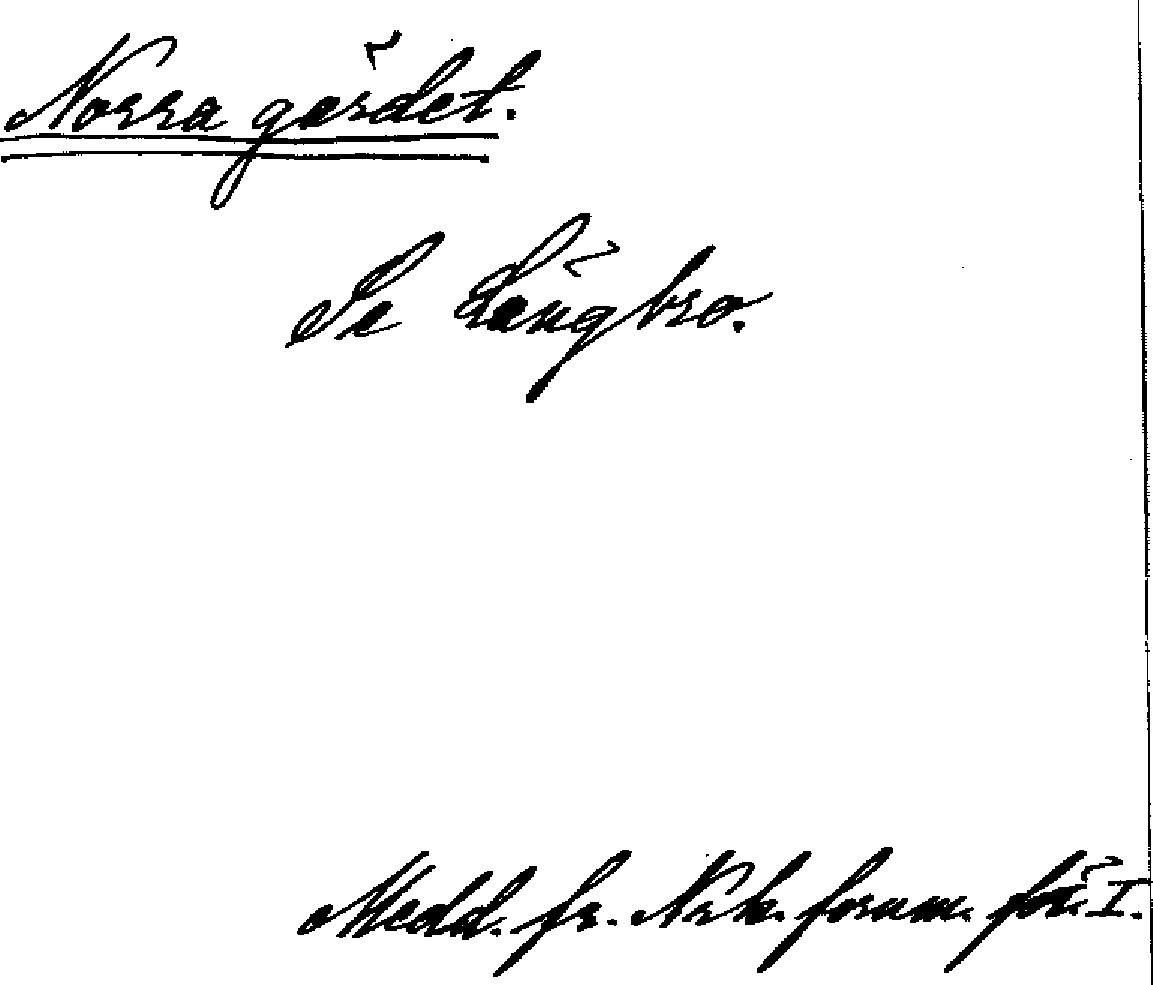 Norra gärdet.
Se Längbro.
Medd. fr. Nrk. fornm. för. I.